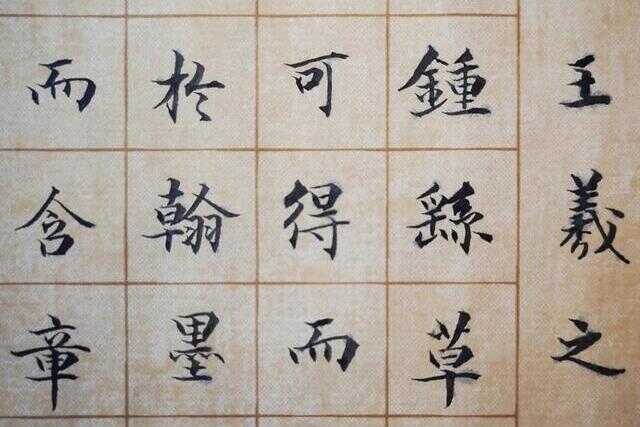 王羲之
鍾繇草
可得而
於翰墨
而含章